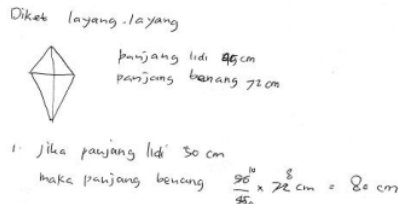 Diket layang-layang
panjang lidi 45 cm
panjang benang 72 cm
1. Jika panjang lidi 50 cm
maka panjang benang 50/45 × 72 cm = 80 cm
10 8